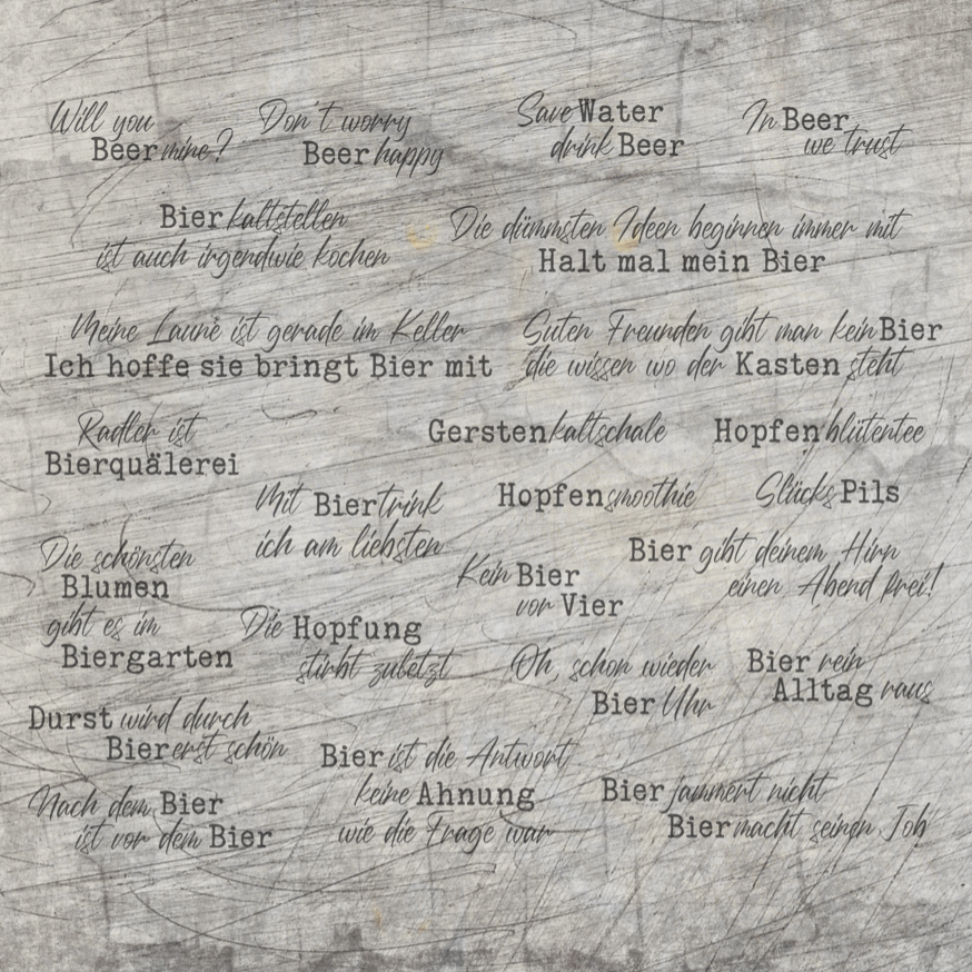 Will you
Beer mine?
Don't worry
Beer happy
Save Water
drink Beer
In Beer
we trust
Bier kaltstellen
ist auch irgendwie kochen
Die dümmsten Ideen beginnen immer mit
Halt mal mein Bier
Meine Laune ist gerade im Keller
Ich hoffe sie bringt Bier mit
Guten Freunden gibt man kein Bier
die wissen wo der Kasten steht
Radler ist
Bierquälerei
Gerstenkaltschale
Hopfenblütentee
Mit Bier trink
ich am liebsten
Hopfensmoothie
GlücksPils
Die schönsten
Blumen
gibt es im
Biergarten
Kein Bier
vor Vier
Bier gibt deinem Hirn
einen Abend frei!
Die Hopfung
stirbt zuletzt
Oh, schon wieder
Bier Uhr
Bier rein
Alltag raus
Durst wird durch
Bier erst schön
Bier ist die Antwort
keine Ahnung
wie die Frage war
Nach dem Bier
ist vor dem Bier
Bier jammert nicht
Bier macht seinen Job